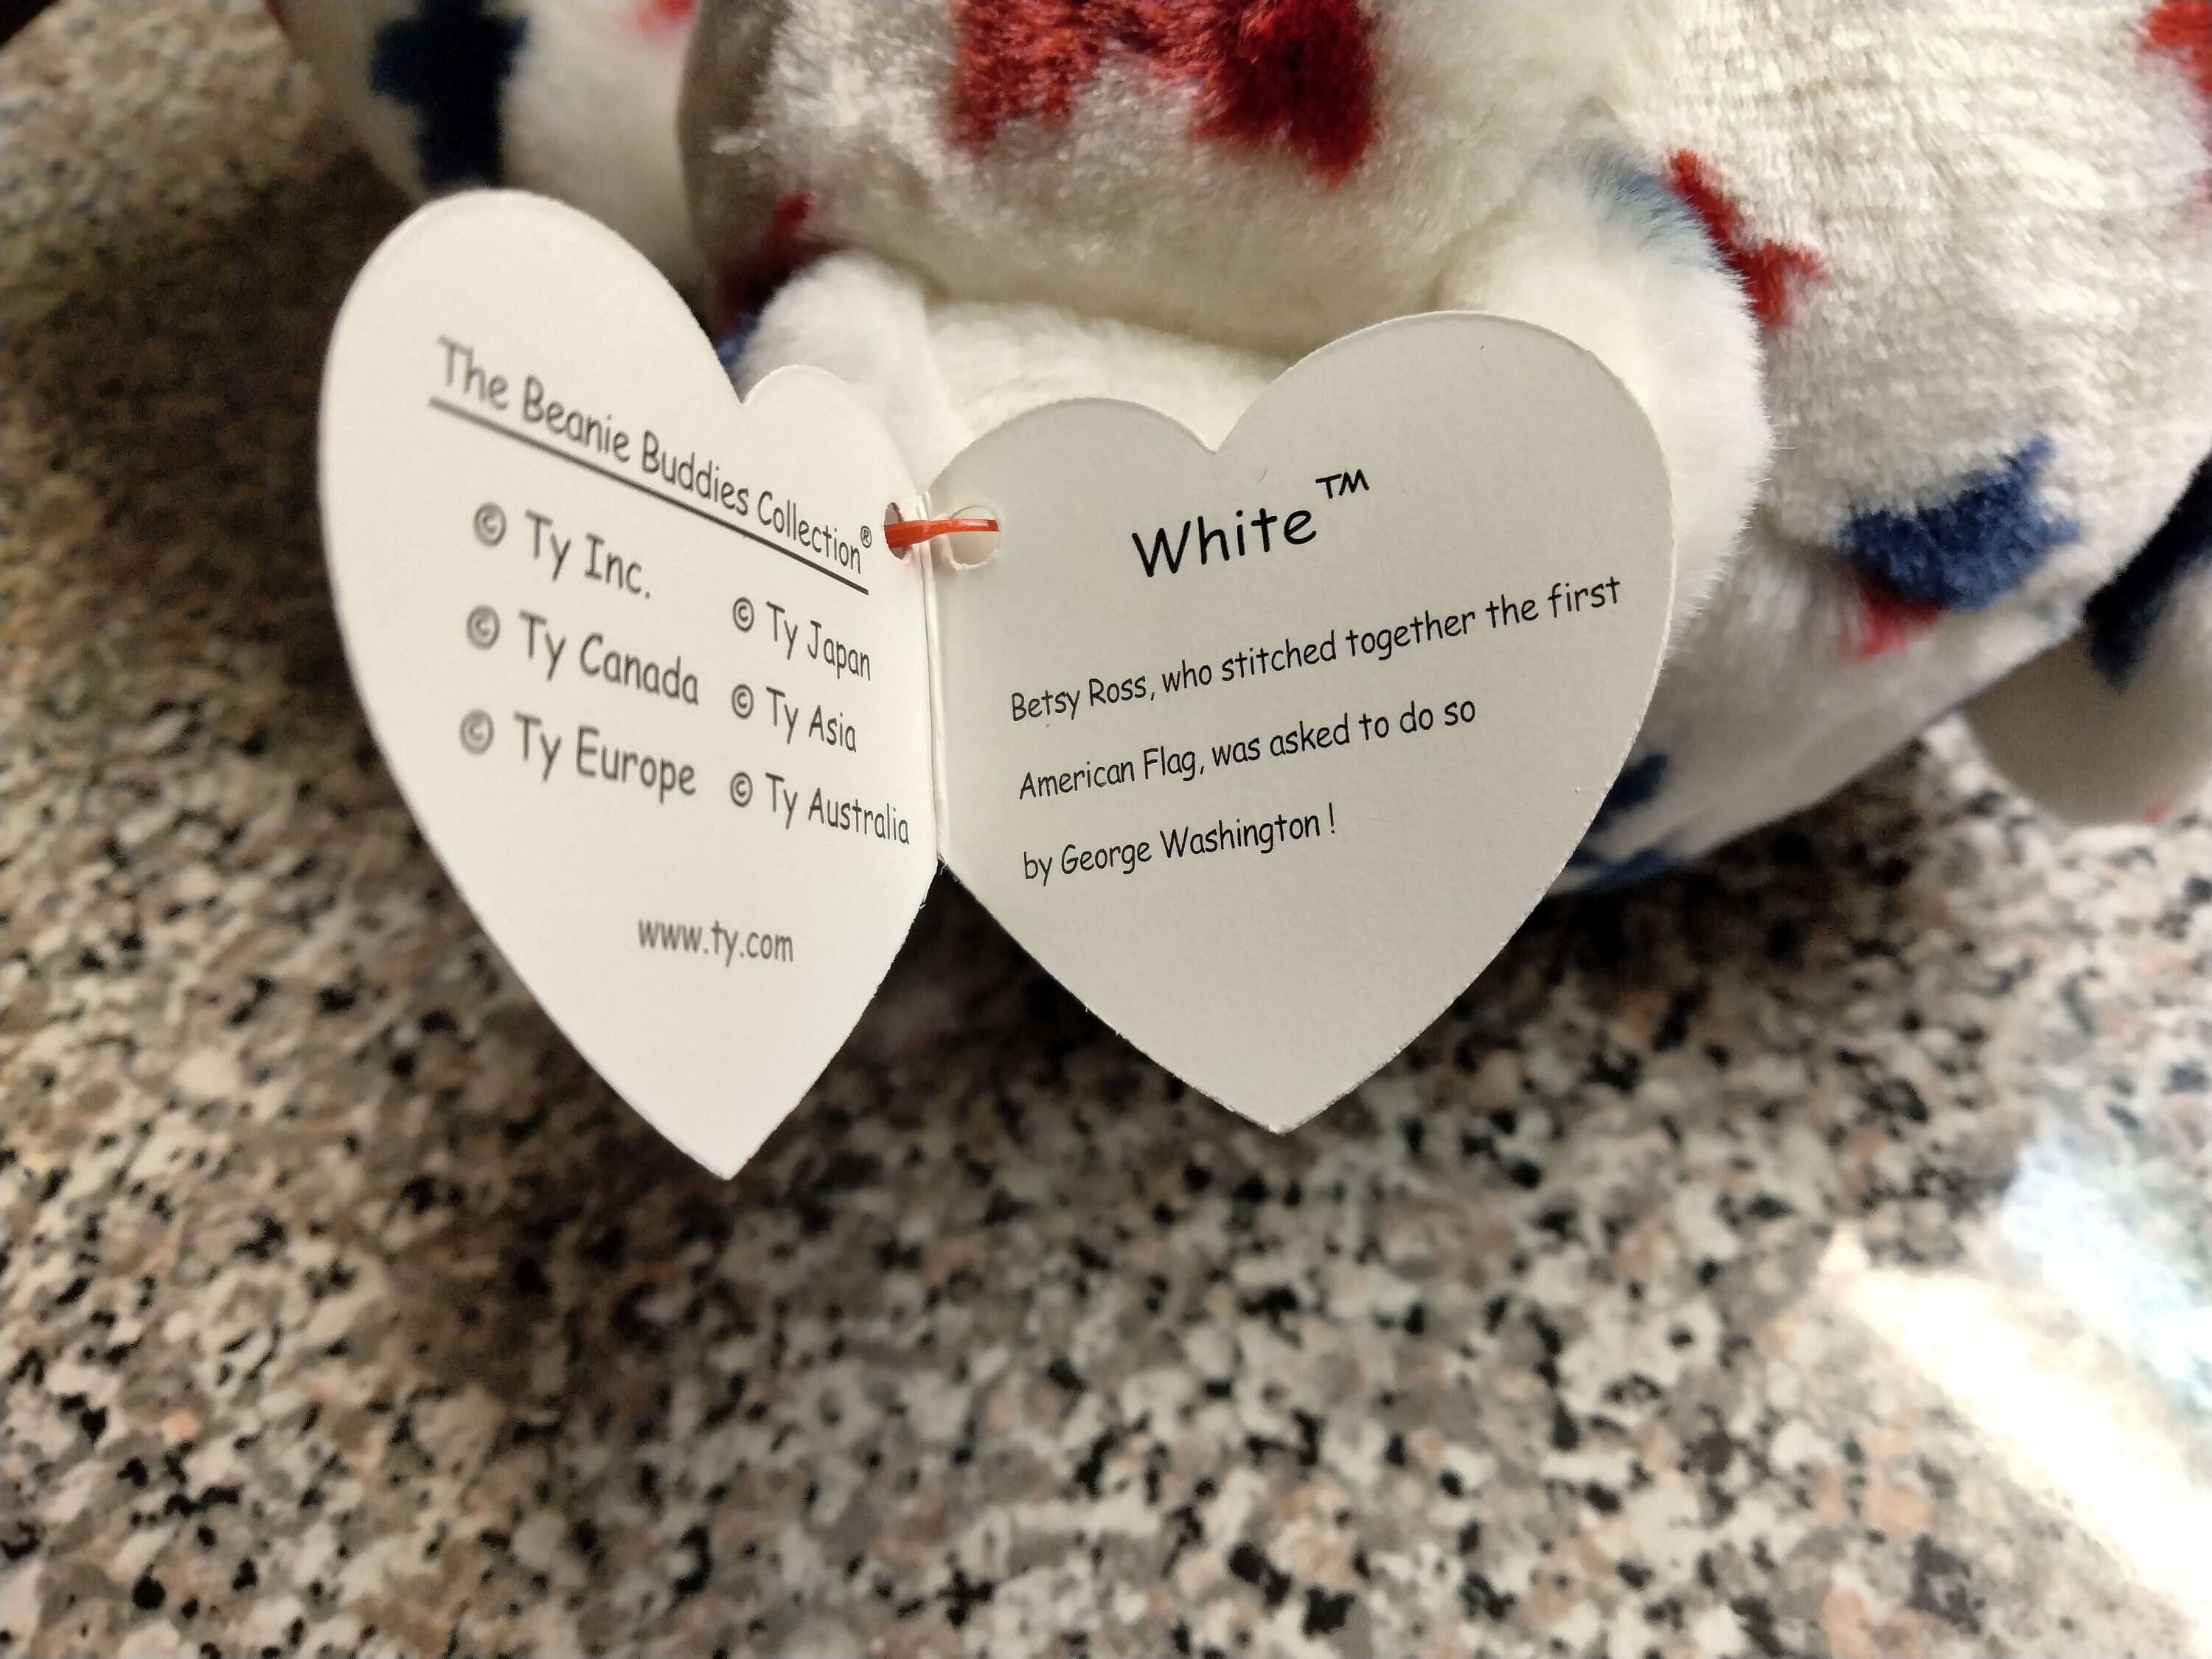 The Beanie Buddies Collection®
© Ty Inc.
© Ty Canada
© Ty Europe
© Ty Japan
© Ty Asia
© Ty Australia
www.ty.com
White™
Betsy Ross, who stitched together the first
American Flag, was asked to do so
by George Washington !